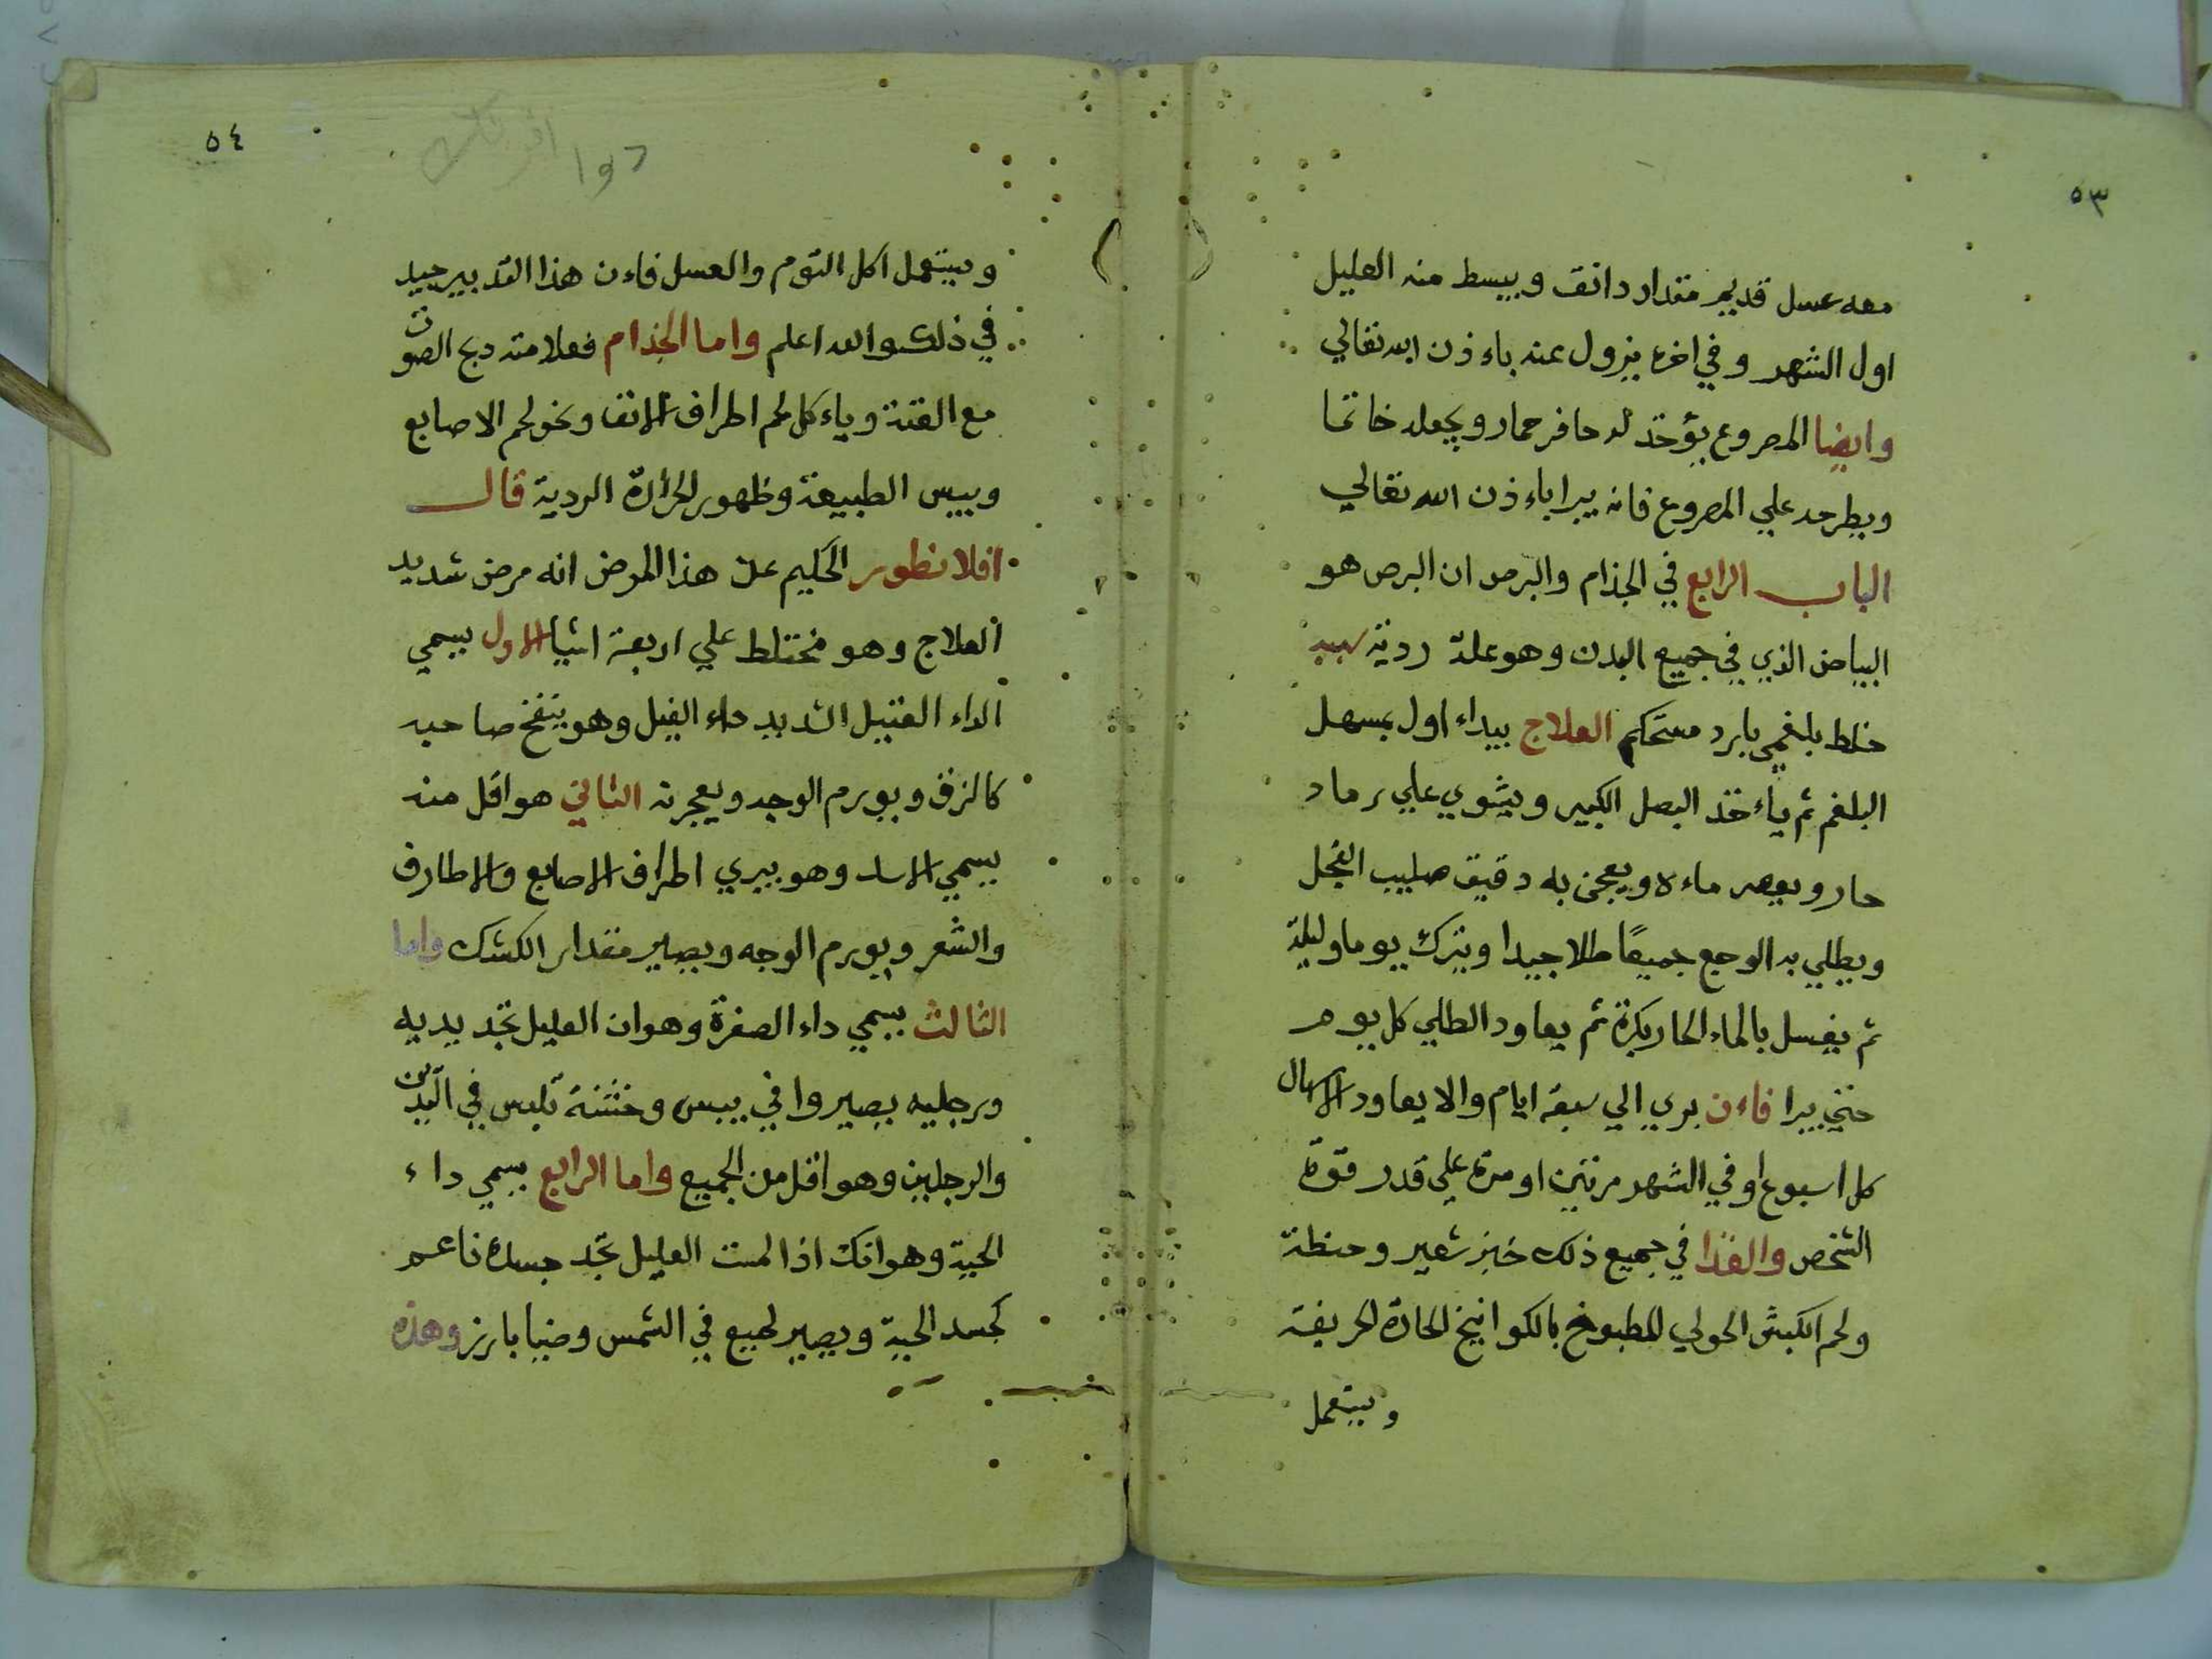 ٥٣
معه عسل قديم مقدار دانق ويبسط منه العليل
اول الشهر وفي اخره يزول عنه باءذن الله تعالي
وايضا المصروع يؤخذ له حافر حمار ويجعله خاتما
ويطرحه علي المصروع فانه يبرا باءذن الله تعالي
الباب الرابع في الجذام والبرص ان البرص هو
البياض الذي في جميع البدن وهو علة ردية سببه
خلط بلغمي بارد مستحكم العلاج يبداء اول بمسهل
البلغم ثم ياءخذ البصل الكبير ويشوي علي رماد
حار ويعصر ماءه ويعجن به دقيق صليب الفجل
ويطلي به الوجع جميعًا طلا جيدا ويترك يوما وليلة
ثم يغسل بالماء الحار بكرة ثم يعاود الطلي كل يوم
حتي يبرا فاءن بري الي سبعة ايام والا يعاود الاسهال
كل اسبوع او في الشهر مرتين او مرة علي قدر قوة
الشخص والغذا في جميع ذلك خبز شعير وحنطة
ولحم الكبش الحولي المطبوخ بالكوانيخ الحادة الحريفة
ويستعمل
٥٤
دوا
ويستعمل اكل الثوم والعسل فاءن هذا التدبير جيد
في ذلك والله اعلم واما الجذام فعلامته بح الصوت
مع الفتنة وياءكل لحم اطراف الانف ونحو لحم الاصابع
ويبس الطبيعة وظهور الحرارة الردية قال
افلانطور الحكيم عن هذا المرض انه مرض شديد
العلاج وهو مختلط علي اربعة اشيا الاول يسمي
الداء الفتيل الشديد داء الفيل وهو ينفخ صاحبه
كالزق ويورم الوجه ويعجرنه الثاني هو اقل منه
يسمي الاسد وهو يبري اطراف الاصابع والاطارف
والشعر ويورم الوجه ويصير مقدار الكشك واما
الثالث يسمي داء الصفرة وهو ان العليل تجد يديه
ورجليه يصيروا في يبس وخشنة تلبس في اليدين
والرجلين وهو اقل من الجميع واما الرابع يسمي داء
الحية وهو انك اذا لمست العليل تجد جسده ناعم
كجسد الحية ويصير لميع في الشمس وضيا بارز وهذه